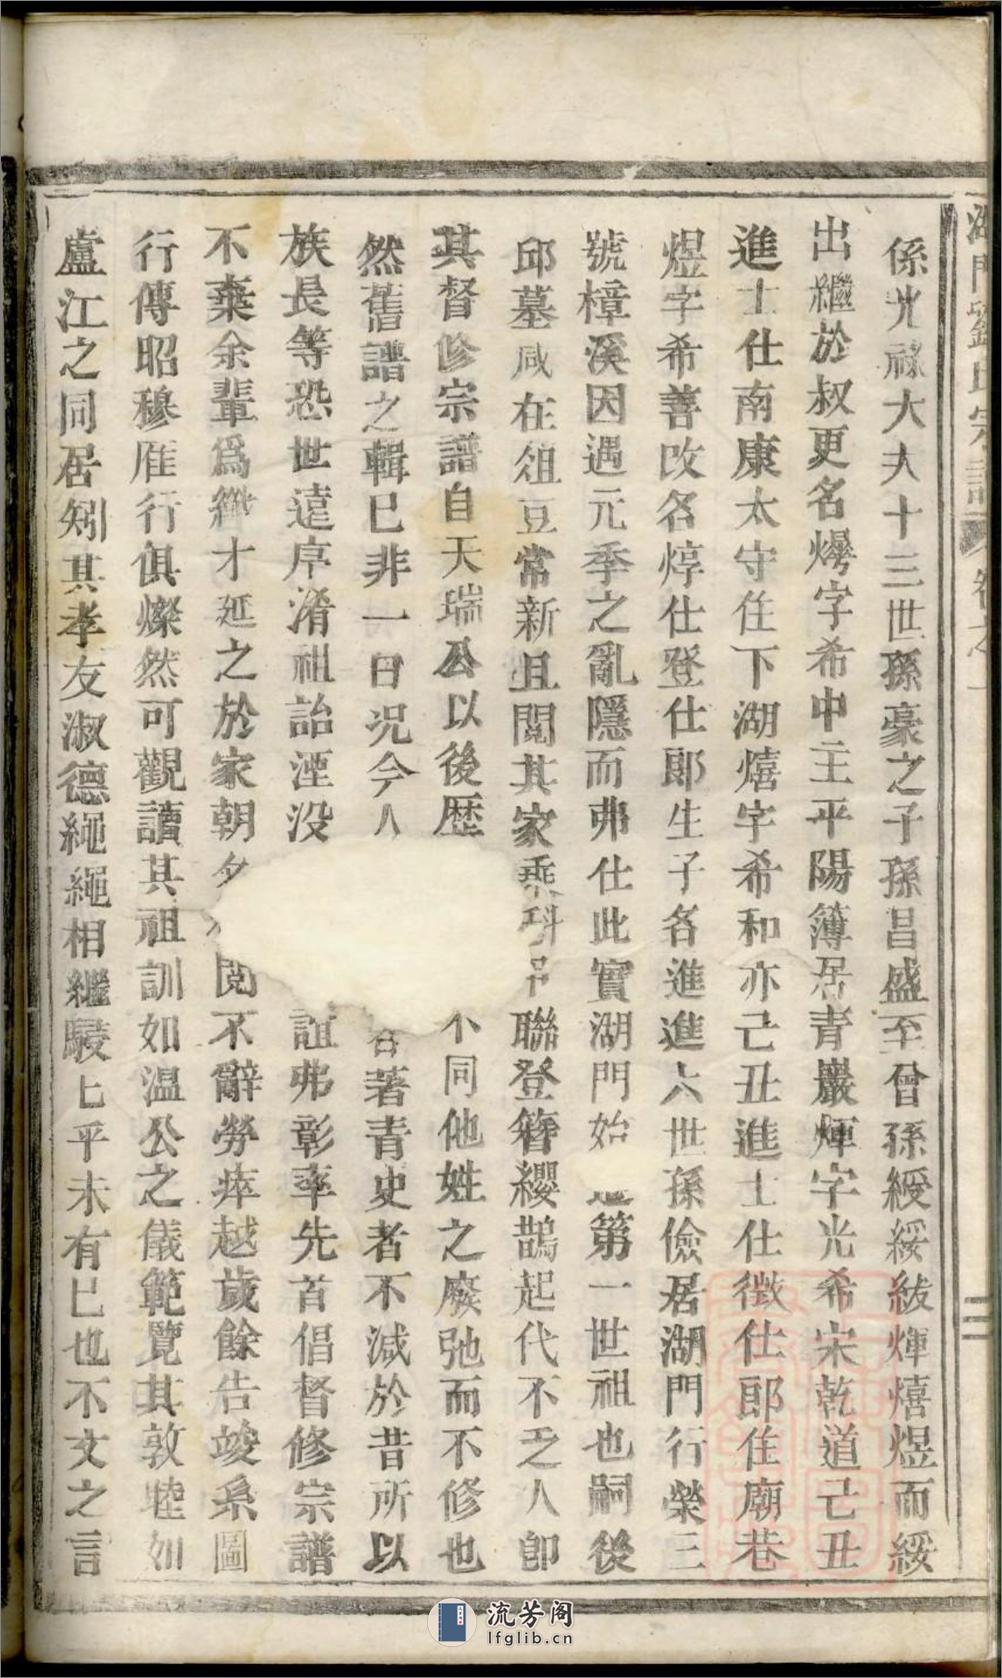 湖門劉氏宗譜 卷之一
二
係光祿大夫十三世孫豪之子孫昌盛至曾孫綬綏紱煇熺煜而綏
出繼於叔更名爗字希中主平陽簿居青巖煇字光希宋乾道己丑
進士仕南康太守住下湖熺字希和亦己丑進士仕徵仕郎住廟巷
煜字希善改名焞仕登仕郎生子各進進六世孫儉居湖門行榮三
號樟溪因遇元季之亂隱而弗仕此實湖門始遷第一世祖也嗣後
邱墓咸在俎豆常新且閱其家乘科甲聯登簪纓鵲起代不乏人卽
其督修宗譜自天瑞公以後歷不同他姓之廢弛而不修也
然舊譜之輯已非一日况今人著青史者不減於昔所以
族長等恐世遠序淆祖詒湮没誼弗彰率先首倡督修宗譜
不棄余輩爲纖才延之於家朝夕閱不辭勞瘁越歲餘告竣系圖
行傳昭穆雁行俱燦然可觀讀其祖訓如温公之儀範覽其敦睦如
盧江之同居矧其孝友淑德繩繩相繼駸乜乎未有已也不文之言
流芳阁
lfglib.cn